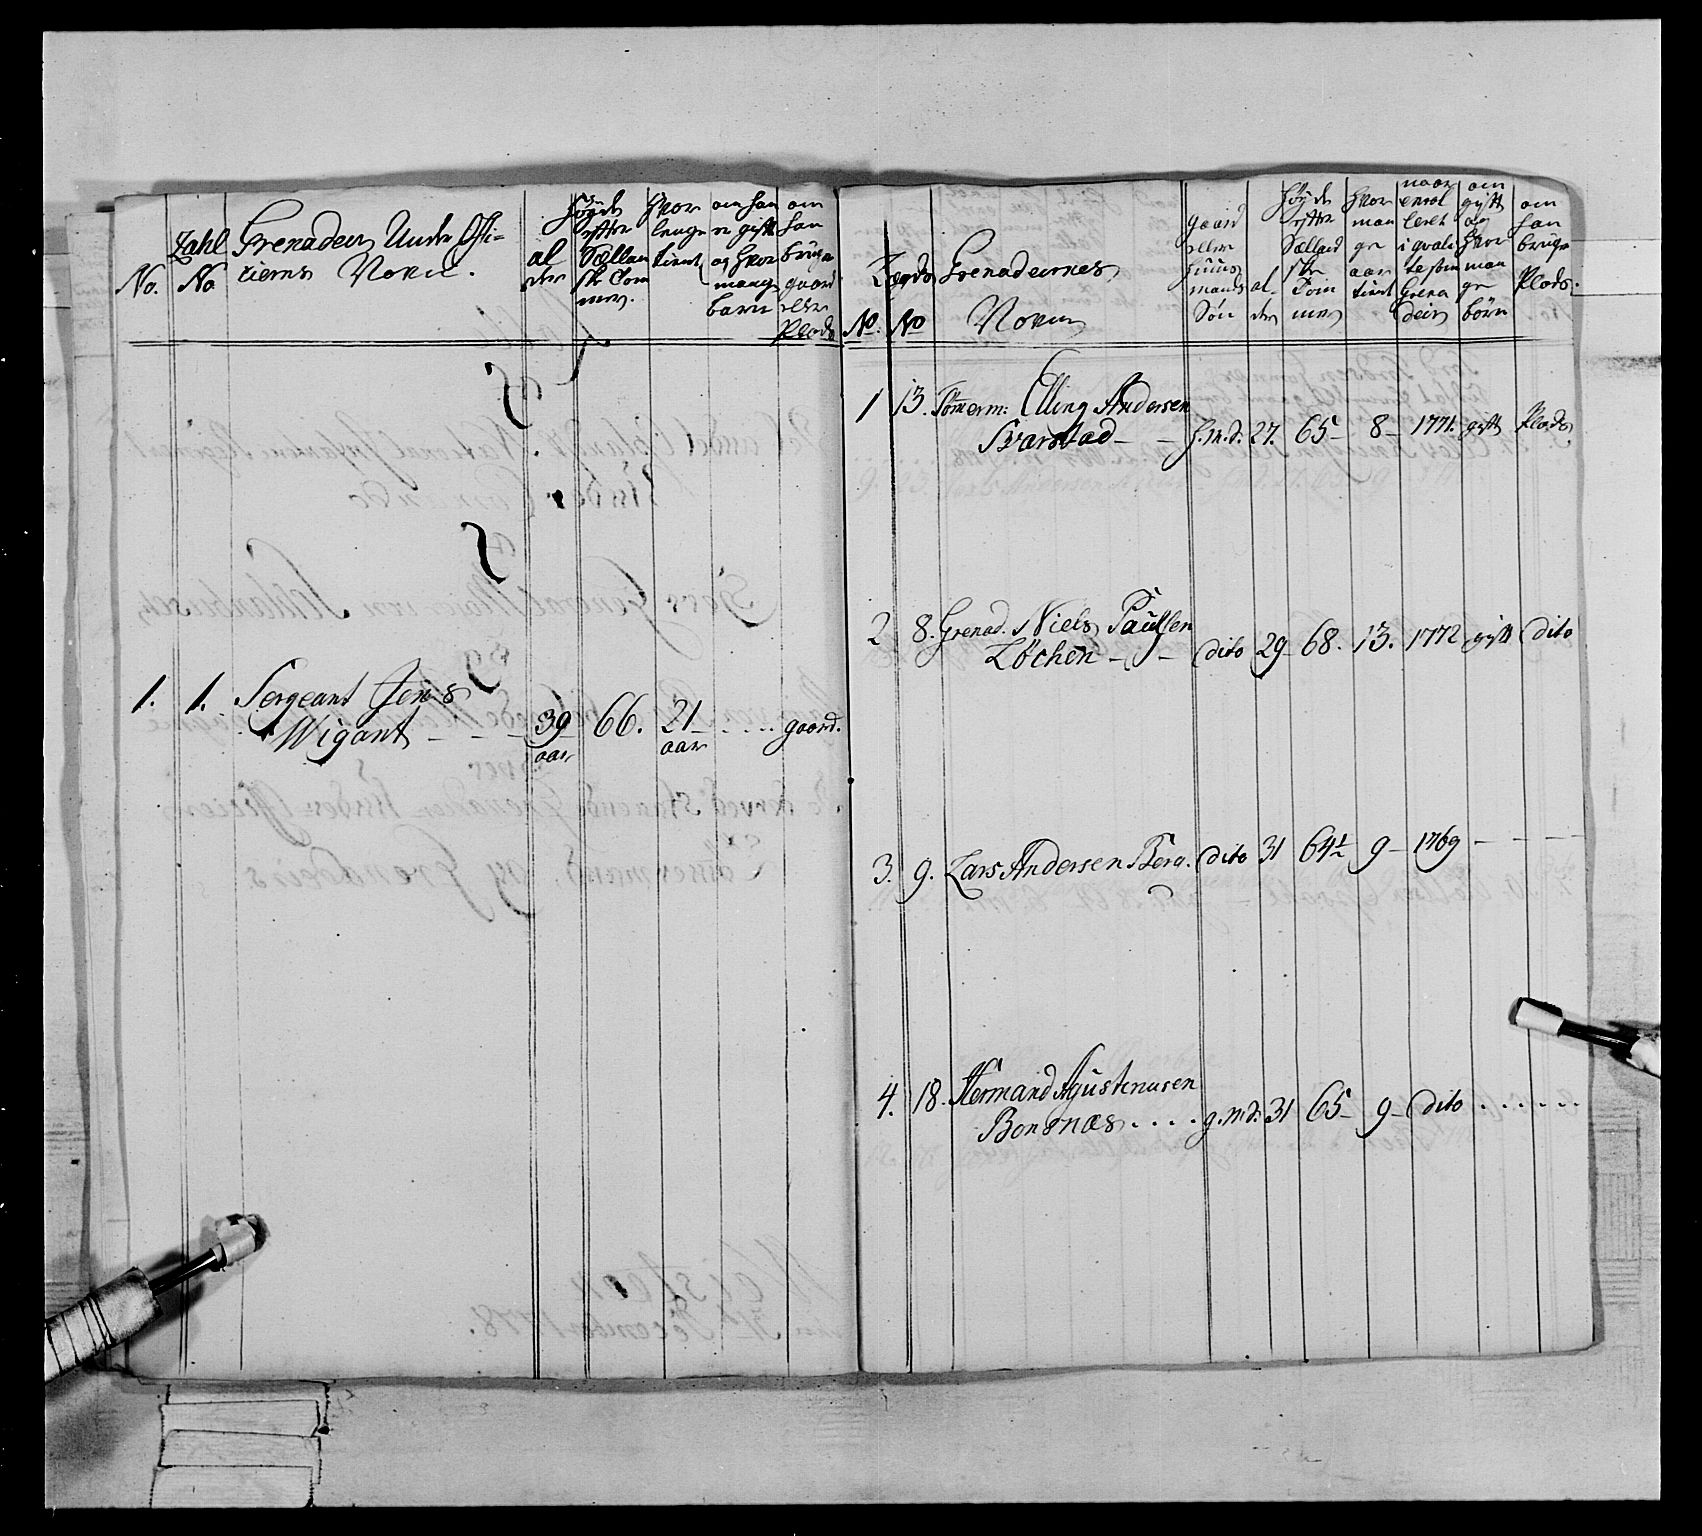 No.
Zahl
No
Grenadeer Under Offi-
ciernes Navn.
al
der
Høyde
efter
Sællan
ske Tom
mer.
hvor
længe
tient
om han
er gift
og hvor
mange
børn
om
han
bruger
gaard
eller
Plads
1. 1. Sergeant Jens
Wigant - - - 39 66. 21 - . . . . gaard.
aar aar
Lægds
No. No
Grenadeernes
Navne
gaard
eller
huus
mands
Søn
al-
der
Høyde
efter
Sælland
ske
Tom
mer
hvor
man
ge
aar
tient
naar
enrol
leret
i qvali
te som
Grena
deer
om
gift
og
hvor
man
ge
børn
om
han
bruger
Plads.
1 13. Tømerm: Elling Andersen
Svarstad - - h.m.d. 27. 65 - 8 - 1771. gift Plads.
2 8. Grenad. Niels Paulsen
Løchen - - dito 29 68. 13. 1772 gift dito
3. 9. Lars Andersen Berg. dito 31 64½ 9 - 1769 - - -
4. 18. Hermand Agustinusen
Bonsnæs . . . . g.m.d: 31 65 - 9 - dito . . . . . .